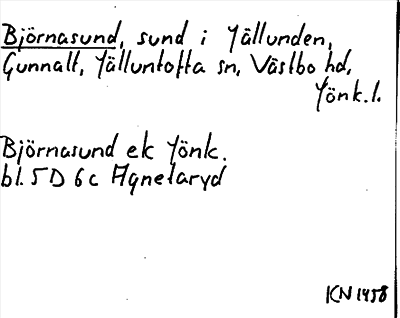 Björnasund, sund i Jällunden,
Gunnalt, Jälluntofta sn, Västbo hd,
Jönk.l.
Björnasund ek Jönk.
bl. 5D 6c Agnetaryd
KN 1958